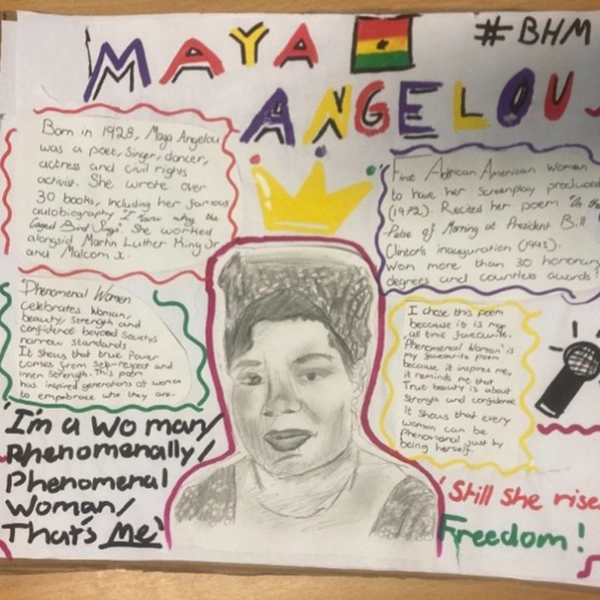 MAYA
#BHM
ANGELOU
Born in 1928, Maya Angelou
was a poet, singer, dancer,
actress and civil rights
activist. She wrote over
30 books, including her famous
autobiography "I know why the
Caged Bird Sings". She worked
alongsid Martin Luther King Jr
and Malcom x.
First African American woman
to have her Screenplay produced
(1972). Recited her poem "On the
Pulse of Morning at President Bill
Clinton's inauguration
Won more than 30 honorary
degrees and countless awards!
Phenomenal Women
celebrates Woman,
beauty, strength and
confidence beyond
narrow standards
It shows that true Power
comes from self-respect and
inner strength. This poem
has inspired generations of women
to who they are.
I chose this poem
because it is my
all time favourite.
'Phenomenal Woman' is
my favourite poem
because, it inspires me,
it reminds me that
True beauty is about
Strength and confidence
It shows that every
woman can be
Phenomenal just by
being herself.
'I'm a Woman/
Phenomenally/
Phenomenal
Woman/
That's Me'
'Still She rise
Freedom!